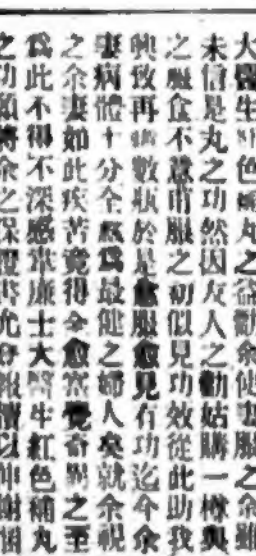 大醫生紅色補丸之益勸余使妻服之余雖
未信是丸之功然因友人之勸姑購一樽與
之服食不意甫服之初似見功效從此助我
興致再購數瓶於是愈服愈見有功迄今余
妻病體十分全愈爲最健之婦人矣就余視
之余妻如此疾苦竟得全愈實覺奇異之至
爲此不得不深感韋廉士大醫生紅色補丸
之功願將余之保證書允登報牘以伸謝悃